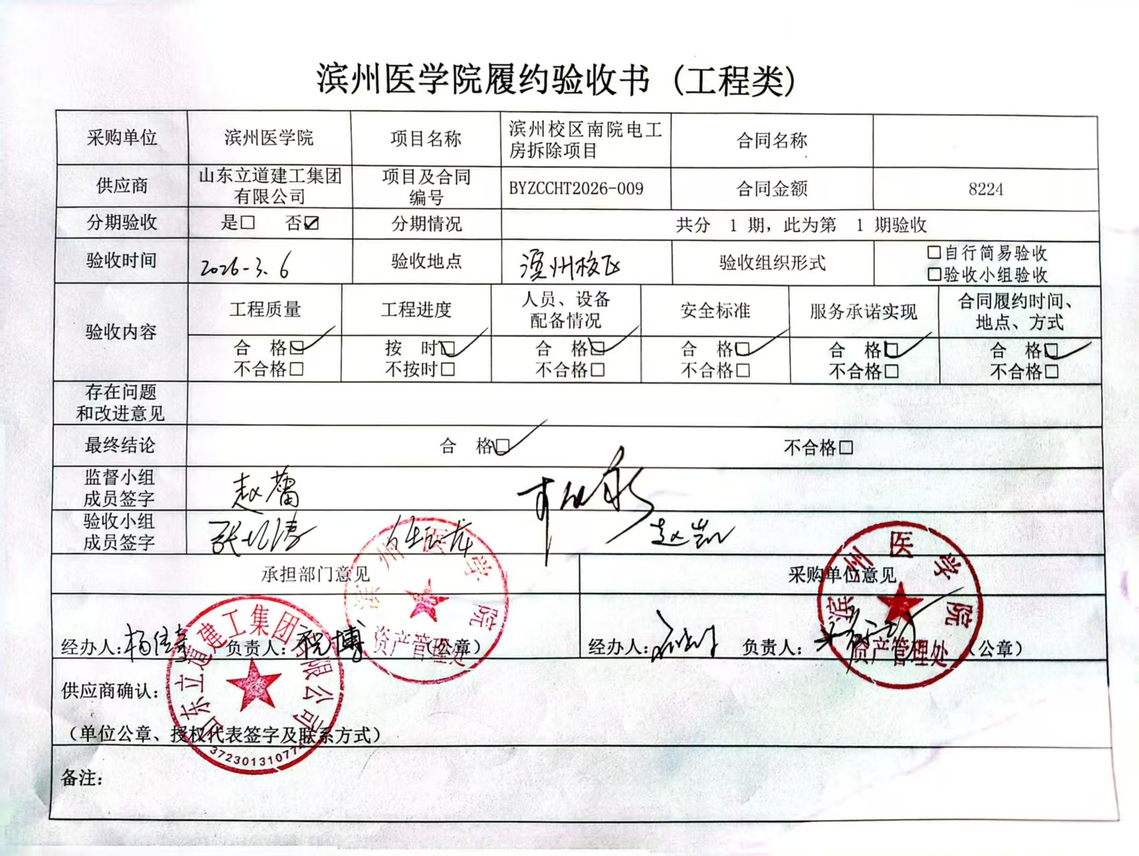 滨州医学院履约验收书（工程类）
采购单位 滨州医学院 项目名称 滨州校区南院电工房拆除项目 合同名称
供应商 山东立道建工集团有限公司 项目及合同编号 BYZCCHT2026-009 合同金额 8224
分期验收 是□ 否☑ 分期情况 共分 1 期，此为第 1 期验收
验收时间 2026-3.6 验收地点 滨州校区 验收组织形式 □自行简易验收
□验收小组验收
验收内容 工程质量 工程进度 人员、设备配备情况 安全标准 服务承诺实现 合同履约时间、地点、方式
合 格☑ 按 时☑ 合 格☑ 合 格☑ 合 格☑ 合 格☑
不合格□ 不按时□ 不合格□ 不合格□ 不合格□ 不合格□
存在问题
和改进意见
最终结论 合 格☑ 不合格□
监督小组
成员签字 赵蕾
验收小组
成员签字 赵凯
承担部门意见 采购单位意见
经办人： 负责人：程博 （公章） 经办人： 负责人： （公章）
滨州医学院
资产管理处
滨州医学院
资产管理处
供应商确认：
山东立道建工集团有限公司
（单位公章、授权代表签字及联系方式）
备注：